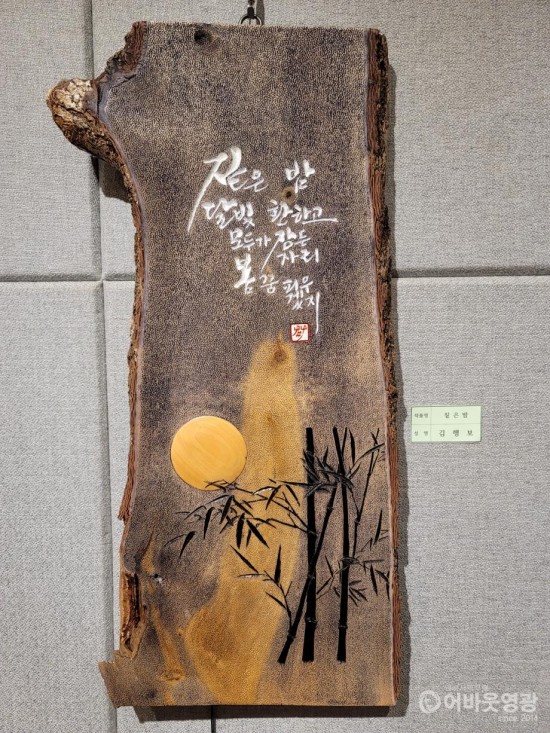 짙은 밤
달빛 환하고
모두가 잠든
자리
봄꿈 피우
겠지
작품명 짙은밤
성명 김행보
어바웃영광
since 2014